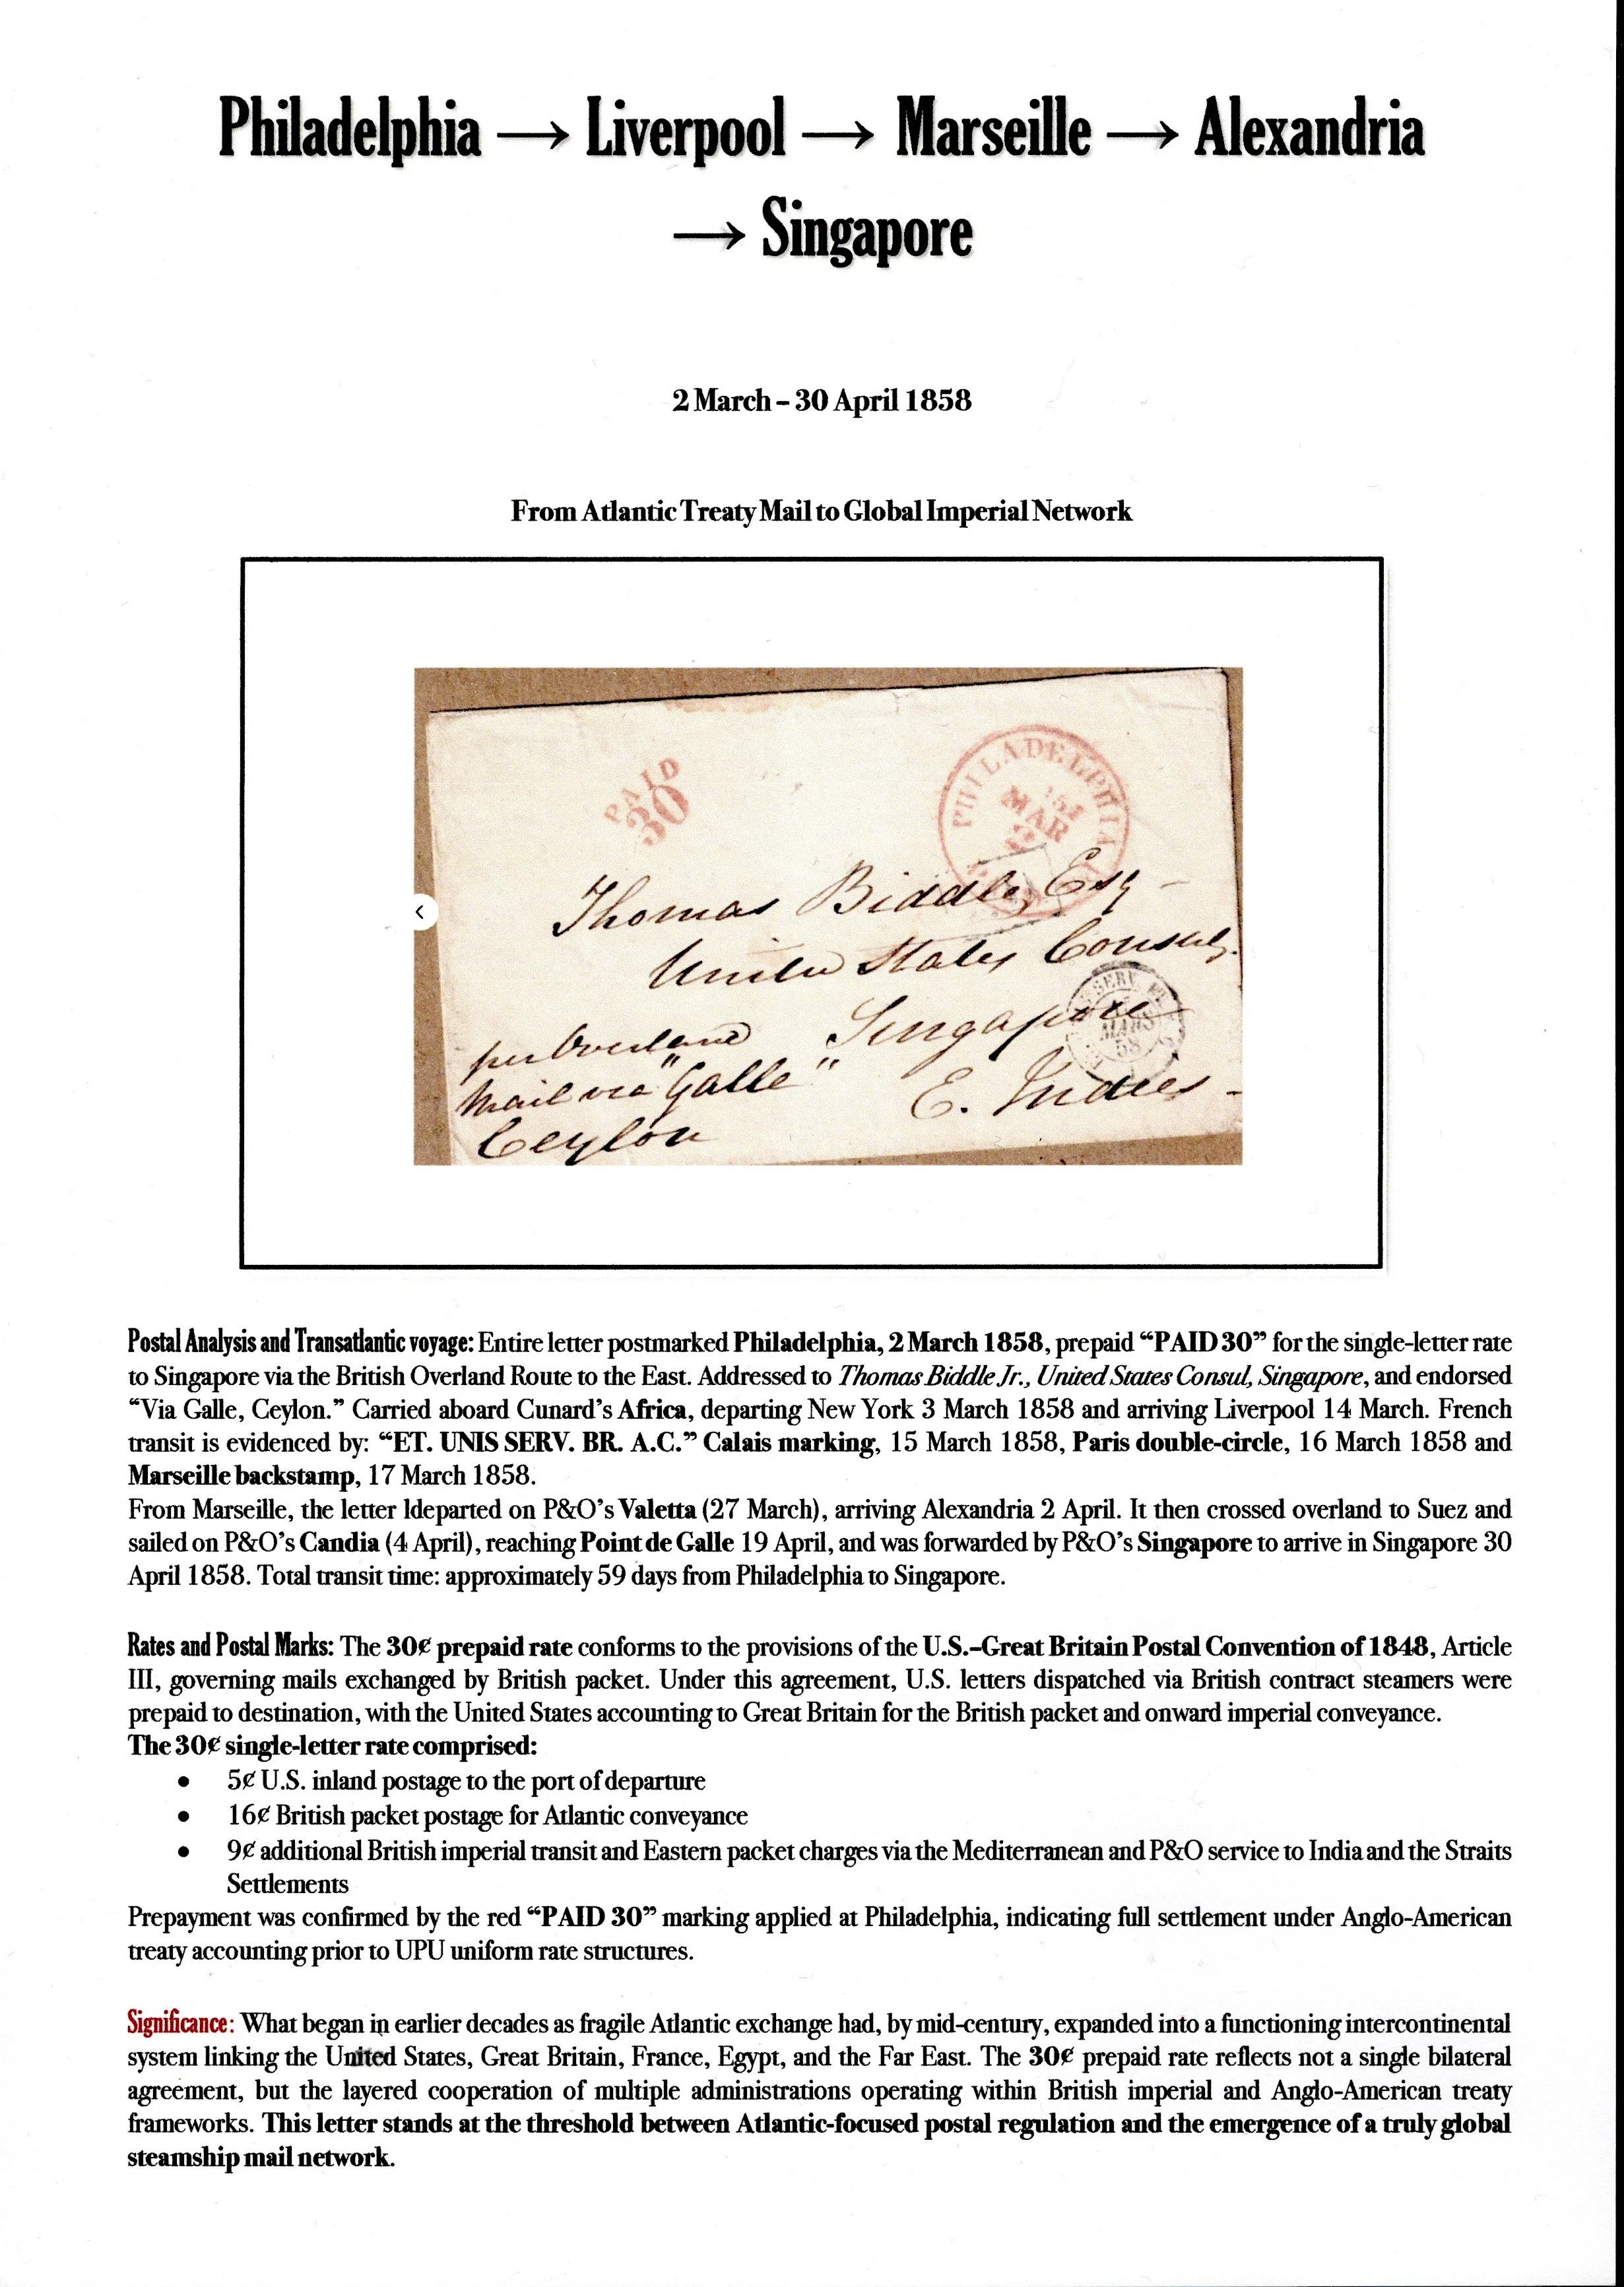 Philadelphia → Liverpool → Marseille → Alexandria
→ Singapore
2 March – 30 April 1858
From Atlantic Treaty Mail to Global Imperial Network
PAID
30
PHILADELPHIA
MAR
2
Thomas Biddle, Esq
United States Consul,
Singapore
E. Indies
per Overland
Mail via "Galle"
Ceylon
SERV.
MARS
58
Postal Analysis and Transatlantic voyage: Entire letter postmarked Philadelphia, 2 March 1858, prepaid “PAID 30” for the single-letter rate
to Singapore via the British Overland Route to the East. Addressed to Thomas Biddle Jr., United States Consul, Singapore, and endorsed
“Via Galle, Ceylon.” Carried aboard Cunard’s Africa, departing New York 3 March 1858 and arriving Liverpool 14 March. French
transit is evidenced by: “ET. UNIS SERV. BR. A.C.” Calais marking, 15 March 1858, Paris double-circle, 16 March 1858 and
Marseille backstamp, 17 March 1858.
From Marseille, the letter ldeparted on P&O’s Valetta (27 March), arriving Alexandria 2 April. It then crossed overland to Suez and
sailed on P&O’s Candia (4 April), reaching Point de Galle 19 April, and was forwarded by P&O’s Singapore to arrive in Singapore 30
April 1858. Total transit time: approximately 59 days from Philadelphia to Singapore.
Rates and Postal Marks: The 30¢ prepaid rate conforms to the provisions of the U.S.–Great Britain Postal Convention of 1848, Article
III, governing mails exchanged by British packet. Under this agreement, U.S. letters dispatched via British contract steamers were
prepaid to destination, with the United States accounting to Great Britain for the British packet and onward imperial conveyance.
The 30¢ single-letter rate comprised:
• 5¢ U.S. inland postage to the port of departure
• 16¢ British packet postage for Atlantic conveyance
• 9¢ additional British imperial transit and Eastern packet charges via the Mediterranean and P&O service to India and the Straits
Settlements
Prepayment was confirmed by the red “PAID 30” marking applied at Philadelphia, indicating full settlement under Anglo-American
treaty accounting prior to UPU uniform rate structures.
Significance: What began in earlier decades as fragile Atlantic exchange had, by mid-century, expanded into a functioning intercontinental
system linking the United States, Great Britain, France, Egypt, and the Far East. The 30¢ prepaid rate reflects not a single bilateral
agreement, but the layered cooperation of multiple administrations operating within British imperial and Anglo-American treaty
frameworks. This letter stands at the threshold between Atlantic-focused postal regulation and the emergence of a truly global
steamship mail network.